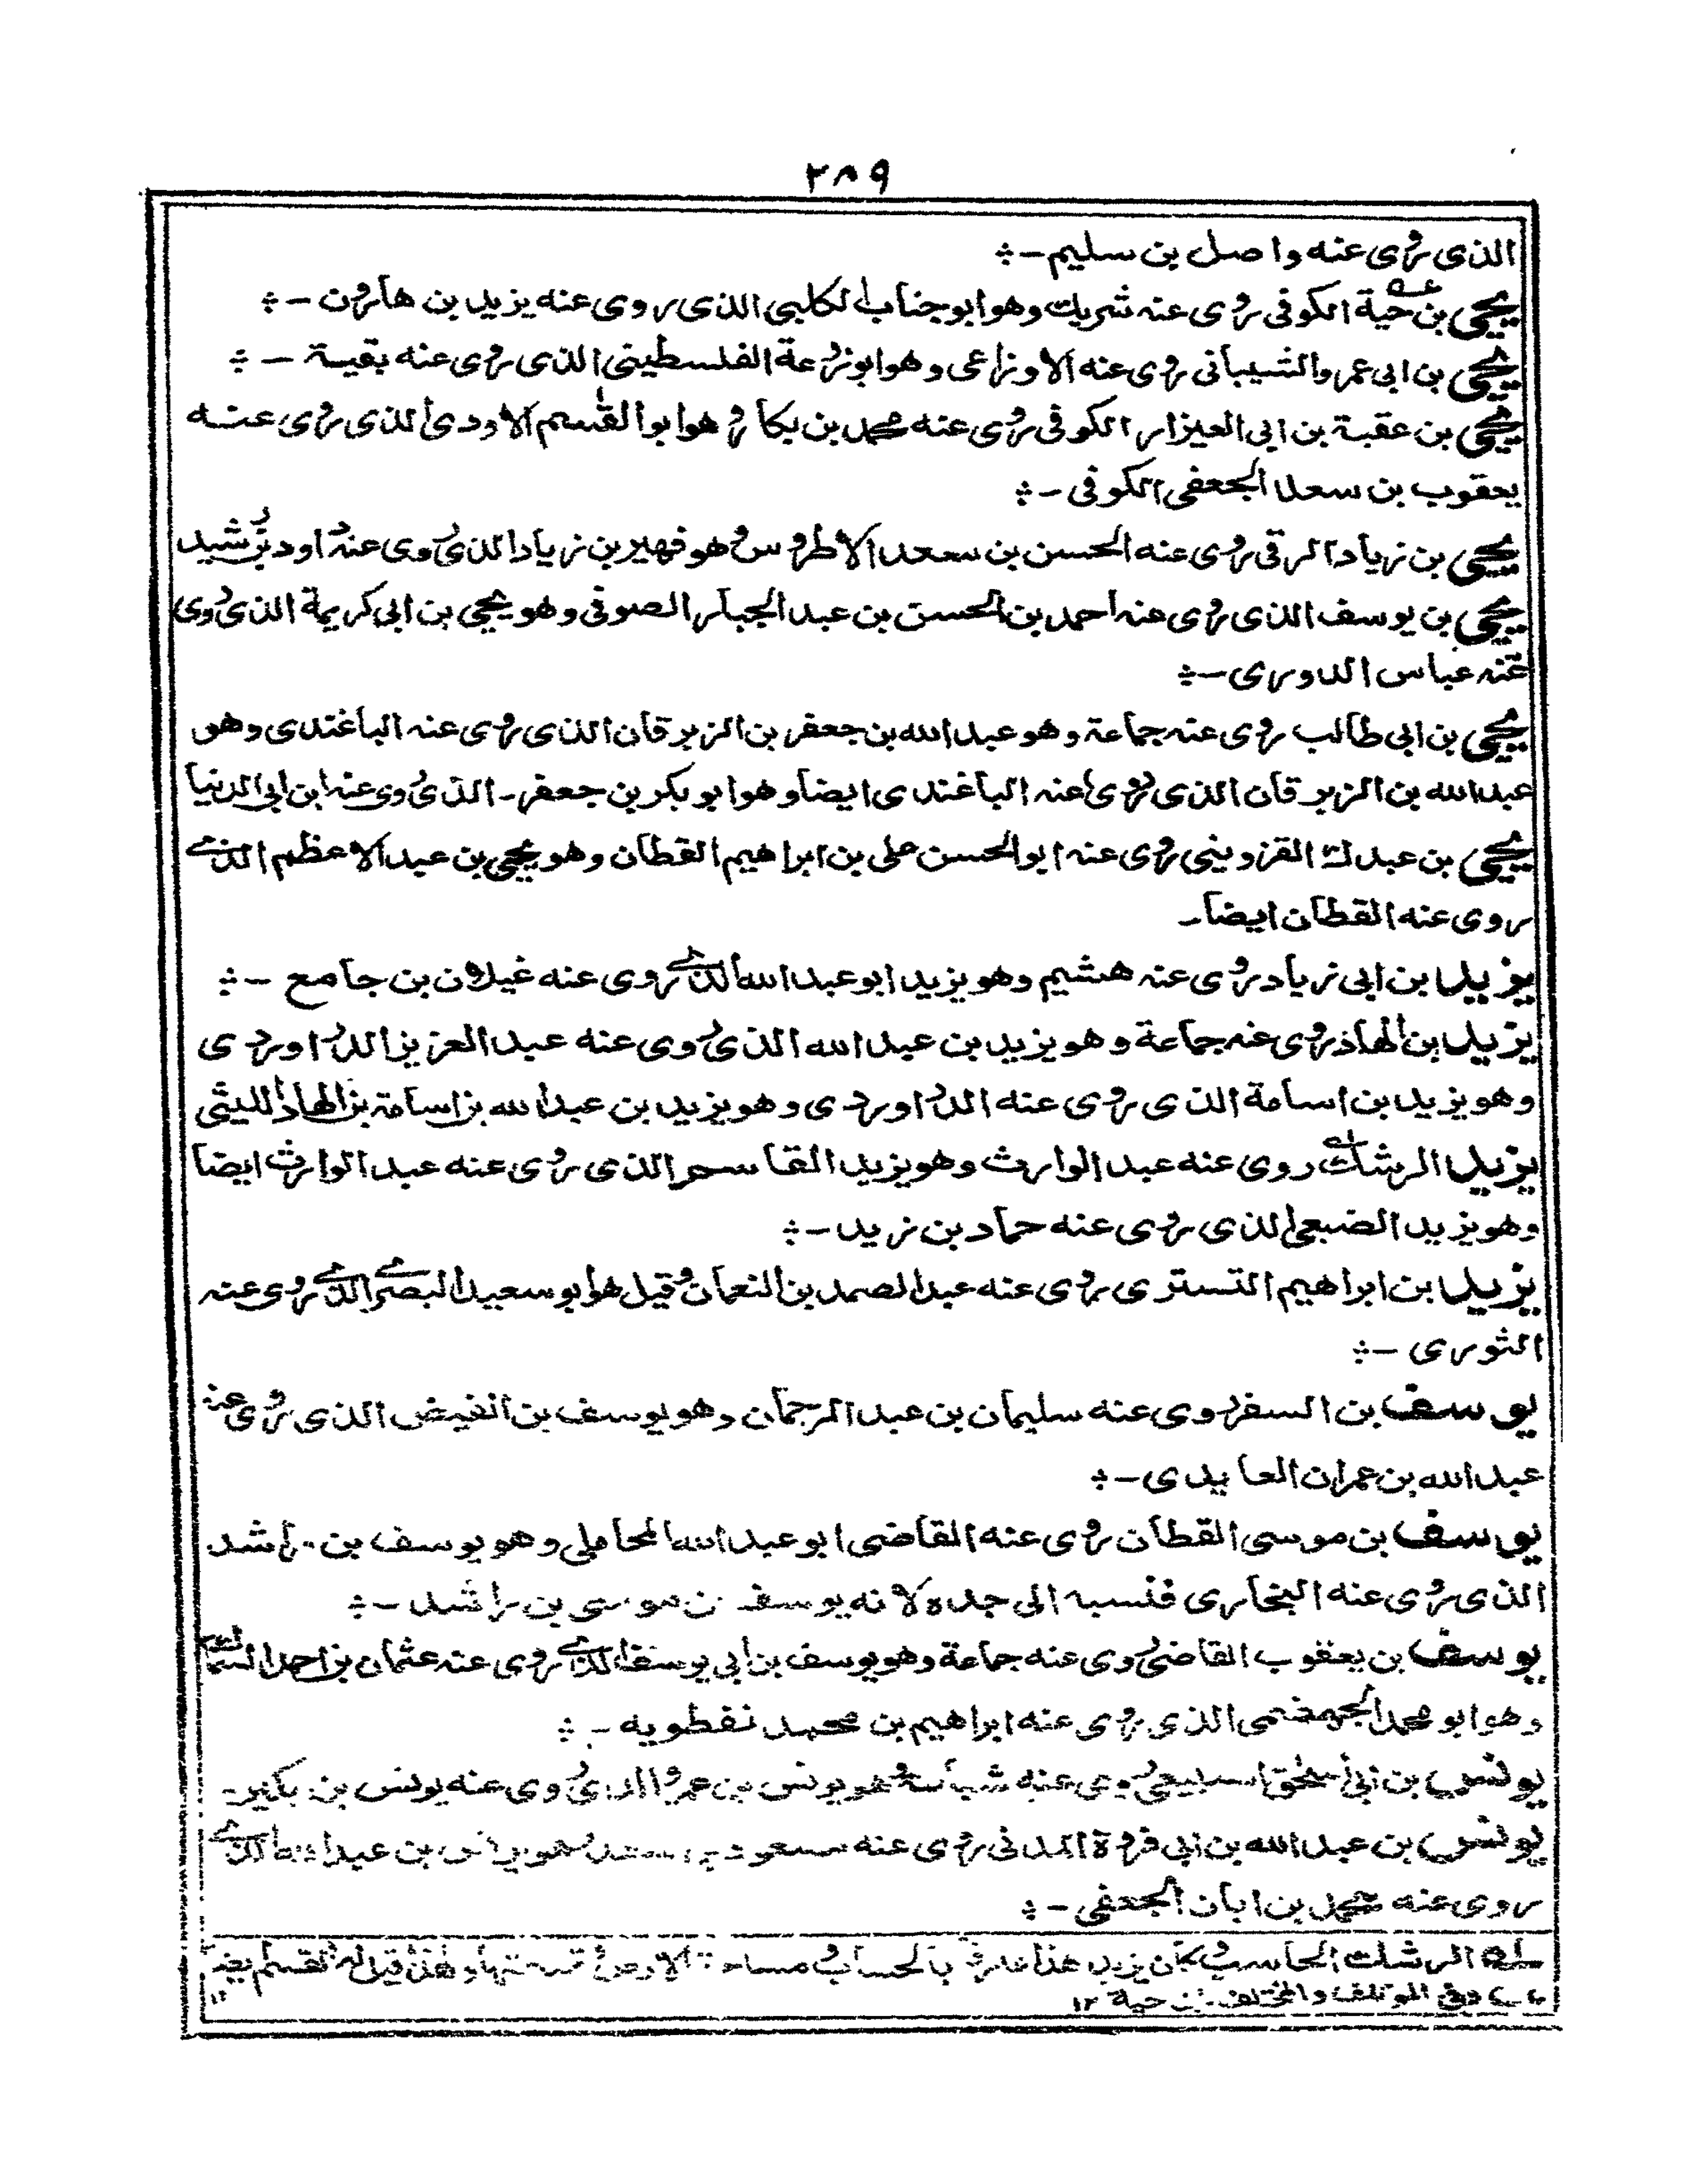 ٢٨٩
الذى روى عنه واصل بن سليم -
يحيى بن حية الكوفى روى عنه شريك وهو ابو جناب الكلبى الذى روى عنه يزيد بن هارون -
يحيى بن ابى عمرو الشيبانى روى عنه الاوزاعى وهو ابو زرعة الفلسطينى الذى روى عنه بقية -
يحيى بن عقبة بن ابى العيزار الكوفى روى عنه محمد بن بكار وهو ابو القسم الاودى الذى روى عنه
يعقوب بن سعد الجعفى الكوفى -
يحيى بن زياد الرقى روى عنه الحسن بن سعد الاطروس وهو فهير بن زياد الذى روى عنه داود بن رشيد
يحيى بن يوسف الذى روى عنه احمد بن الحسن بن عبد الجبار الصوفى وهو يحيى بن ابى كريمة الذى روى
عنه عباس الدورى -
يحيى بن ابى طالب روى عنه جماعة وهو عبد الله بن جعفر بن الزبرقان الذى روى عنه الباغندى وهو
عبد الله بن الزبرقان الذى روى عنه الباغندى ايضا وهو ابو بكر بن جعفر - الذى روى عنه ابن ابى الدنيا
يحيى بن عبدك القزوينى روى عنه ابو الحسن على بن ابراهيم القطان وهو يحيى بن عبد الاعظم الذى
روى عنه القطان ايضا -
يزيد بن ابى زياد روى عنه هشيم وهو يزيد ابو عبد الله الذى روى عنه غيلان بن جامع -
يزيد بن الهاد روى عنه جماعة وهو يزيد بن عبد الله الذى روى عنه عبد العزيز الدراوردى
وهو يزيد بن اسامة الذى روى عنه الدراوردى وهو يزيد بن عبد الله بن اسامة بن الهاد الليثى
يزيد الرشك روى عنه عبد الوارث وهو يزيد القاسم الذى روى عنه عبد الوارث ايضا
وهو يزيد الضبعى الذى روى عنه حماد بن زيد -
يزيد بن ابراهيم التسترى روى عنه عبد الصمد بن النعمان وقيل هو ابو سعيد البصرى الذى روى عنه
الثورى -
يوسف بن السفر روى عنه سليمان بن عبد الرحمان وهو يوسف بن الفيض الذى روى عنه
عبد الله بن عمران العابدى -
يوسف بن موسى القطان روى عنه القاضى ابو عبد الله المحاملى وهو يوسف بن راشد
الذى روى عنه البخارى فنسبه الى جده لانه يوسف بن موسى بن راشد -
يوسف بن يعقوب القاضى روى عنه جماعة وهو يوسف بن ابى يوسف الذى روى عنه عثمان بن احمد
وهو ابو محمد الجهضمى الذى روى عنه ابراهيم بن محمد نفطويه -
يونس بن ابى اسحق السبيعى روى عنه شبابة وهو يونس بن عمرو الذى روى عنه يونس بن بكير -
يونس بن عبد الله بن ابى فروة المدنى روى عنه مسعود بن سعد وهو يونس بن عبد الذى
روى عنه محمد بن ابان الجعفى -
الرشك الحاسب وكان يزيد هذا بالحساب مساحة الارض قيل له القسام ايضا ١٢
وفى المؤتلف والمختلف بن حية ١٢